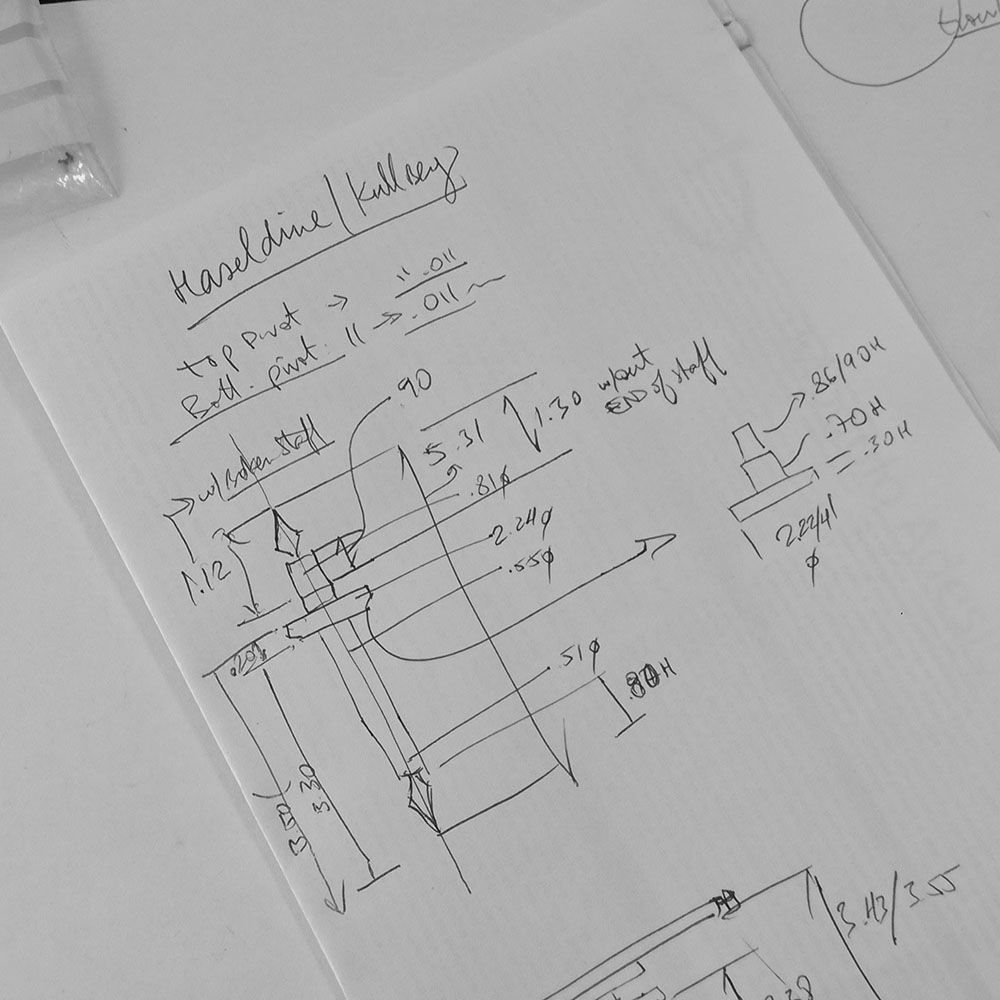 Haseldine/Kullberg
top pivot → " .011
Bott. pivot. " → .011
→ w/broken staff
.90
5.31
1.30
w/out
END of staff
.81ø
1.12
2.24ø
.55ø
.20
.51ø
.80H
3.30
.86/90H
.70H
= .30H
2.22/41
ø
3.43/3.55